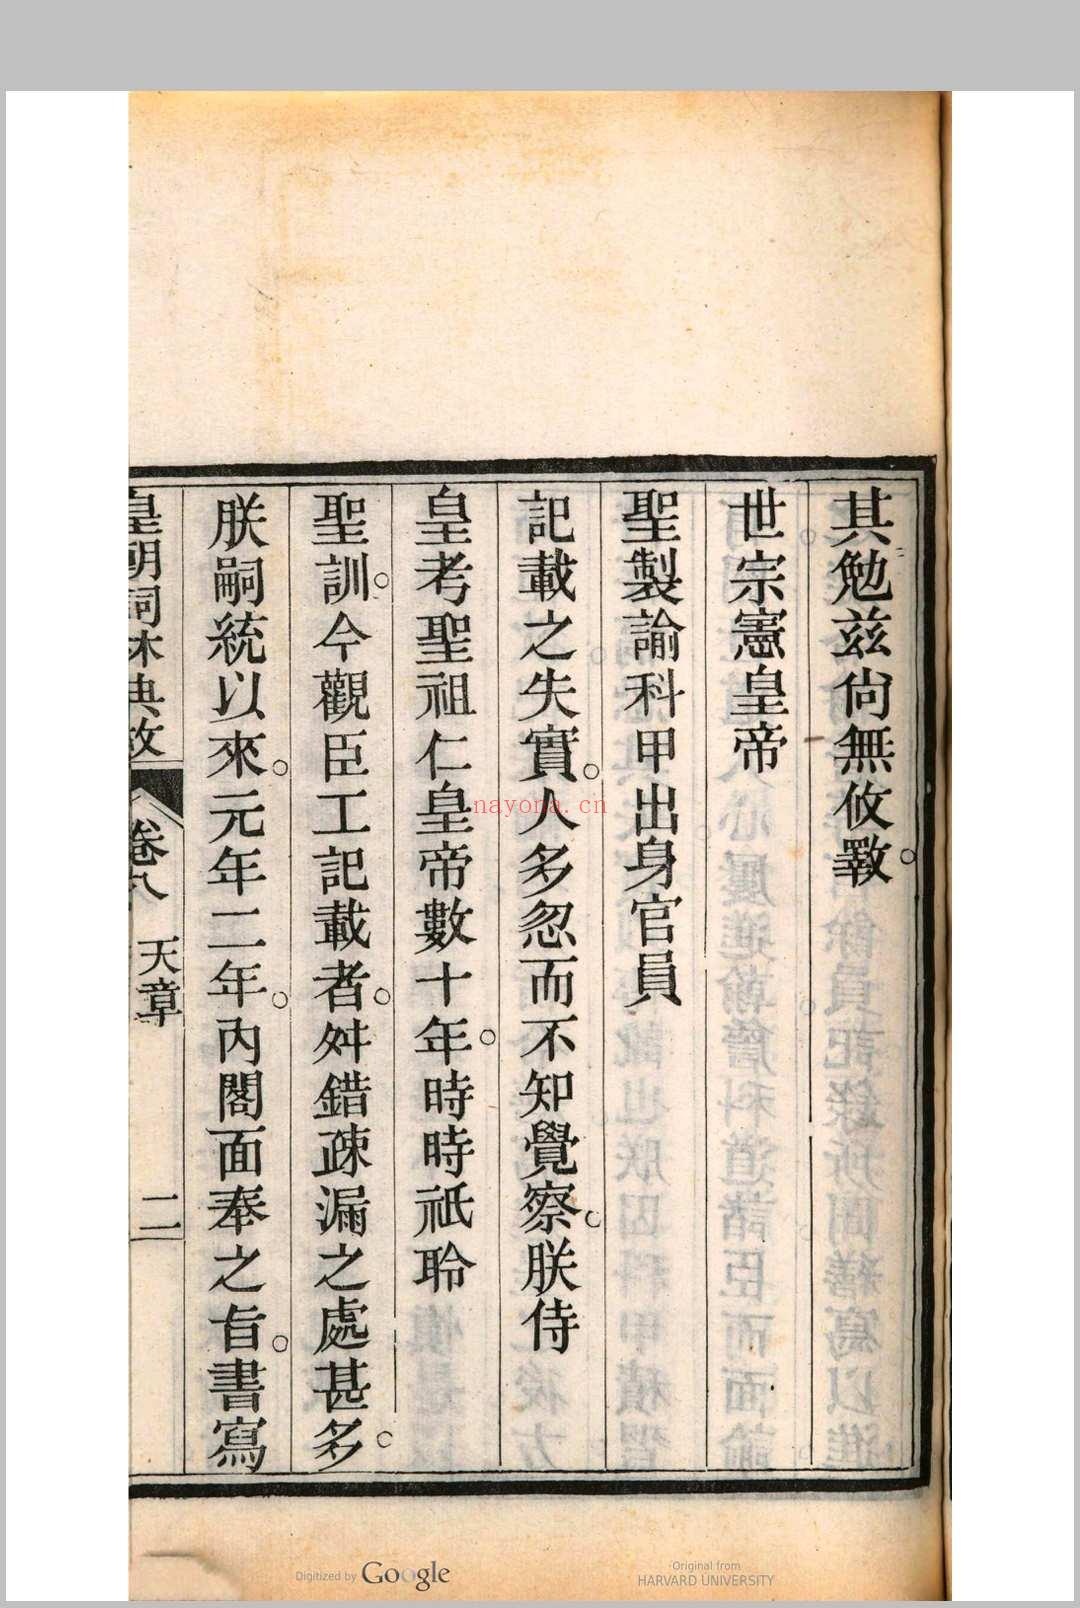 其勉茲尙無攸斁○
世宗憲皇帝
聖製諭科甲出身官員
記載之失實○人多忽而不知覺察○朕侍
皇考聖祖仁皇帝數十年○時時祇聆
聖訓○今觀臣工記載者○舛錯疎漏之處甚多○
朕嗣統以來○元年二年○內閣面奉之旨○書寫
皇朝詞林典故 卷八 天章 二
nayona.cn
Digitized by Google
Original from
HARVARD UNIVERSITY